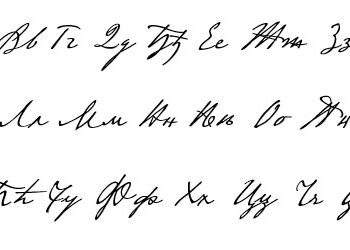 Вв Гг Дд Ђђ Ее Жж Зз
Лл Мм Нн Њњ Оо Пп
Ћћ Уу Фф Хх Цц Чч